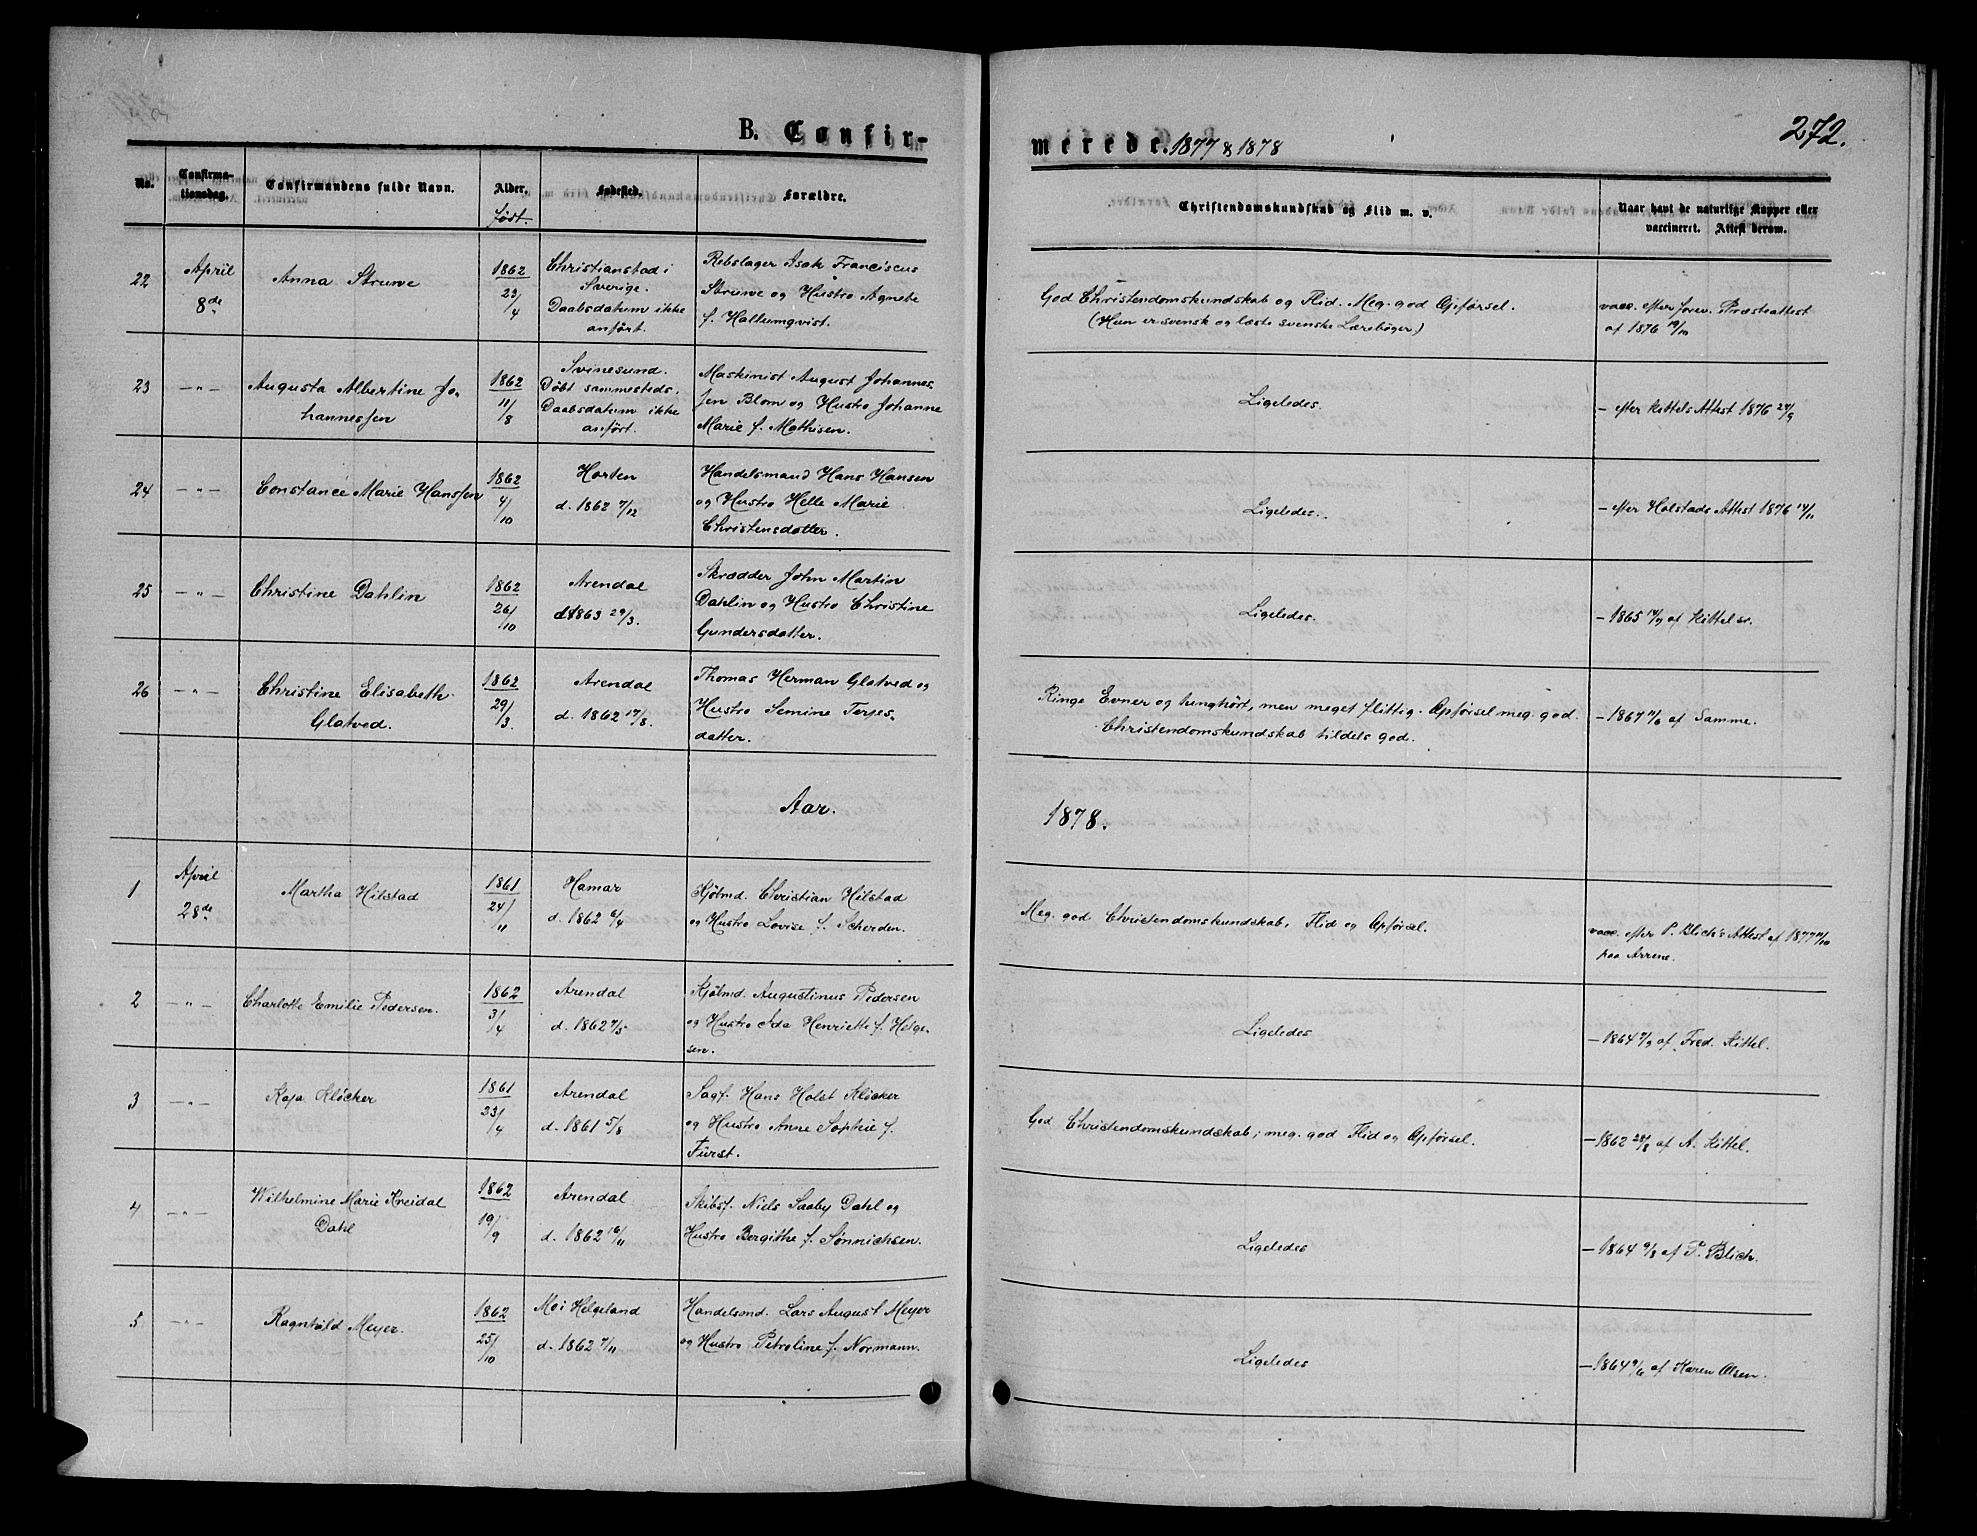 272.
B. Confir-
merede. 1877 & 1878
No.
Confirma-
tionsdag.
Confirmandens fulde Navn.
Alder,
født.
Fødested.
Forældre.
Christendomskundskab og Flid m. v.
Naar havt de naturlige Kopper eller
vaccineret. Attest derom.
22
April
8de
Anna Struwe
1862
23/4
Christianstad i
Sverige.
Daabsdatum ikke
anført.
Rebslager Isak Franciscus
Struwe og Hustro Agnete
f. Hallumqvist.
God Christendomskundskab og Flid. Meg. god Opførsel.
(Hun er svensk og læste svenske Lærebøger)
vacc. efter forev. Præsteattest
af 1876 19/10
23
— " —
Augusta Albertine Jo-
hannessen
1862
11/8
Svinesund.
Døbt sammesteds.
Daabsdatum ikke
anført.
Maskinist August Johannes
sen Blom og Hustro Johanne
Marie f. Mathisen.
Ligeledes.
— efter Kittels Attest 1876 24/9
24
— " —
Constance Marie Hanssen
1862
4/10
Horten
d. 1862 7/12
Handelsmand Hans Hansen
og Hustro Helle Marie
Christensdatter.
Ligeledes.
— efter Holstads Attest 1876 14/11
25
— " —
Christine Dahlin
1862
26/10
Arendal
d. 1863 29/3.
Skrædder John Martin
Dahlin og Hustro Christine
Gundersdatter.
Ligeledes.
— 1865 14/9 af Kittel sr.
26
— " —
Christine Elisabeth
Glatved.
1862
29/3.
Arendal
d. 1862 17/8.
Thomas Herman Glatved og
Hustro Semine Terjes-
datter.
Ringe Evner og tunghørt, men meget flittig. Opførsel meg. god.
Christendomskundskab tildels god.
— 1867 11/6 af Samme.
Aar.
1878.
1
April
28de
Martha Hilstad
1861
24/11
Hamar
d. 1862 6/4
Kjølmd. Christian Hilstad
og Hustro Lovise f. Scherden.
Meg. god Christendomskundskab, Flid og Opførsel.
vacc. efter P. Blich's Attest af 1877 11/10
paa Arrene.
2
— " —
Charlotte Emilie Pedersen.
1862
3/4
Arendal
d. 1862 7/5
Kjølmd. Augustinus Pedersen
og Hustro Ida Henriette f. Helge-
sen.
Ligeledes
— 1864 7/9 af Fred. Kittel.
3
— " —
Kaja Kløcker
1861
23/4
Arendal
d. 1861 5/8
Sagf. Hans Holst Kløcker
og Hustro Anne Sophie f.
Fürst.
God Christendomskundskab, meg. god Flid og Opførsel.
— 1862 28/8 af A. Kittel.
4
— " —
Wilhelmine Marie Kreidal
Dahl
1862
19/9
Arendal
d. 1862 16/11
Skibsf. Niels Saaby Dahl og
Hustro Bergithe f. Sønnichsen.
Ligeledes
— 1864 9/8 af P. Blich.
5
— " —
Ragnhild Meyer.
1862
25/10
Mo i Helgeland
d. 1862 7/11
Handelsmd. Lars August Meyer
og Hustro Petroline f. Normann.
Ligeledes
— 1864 9/6 af Karen Olsen.